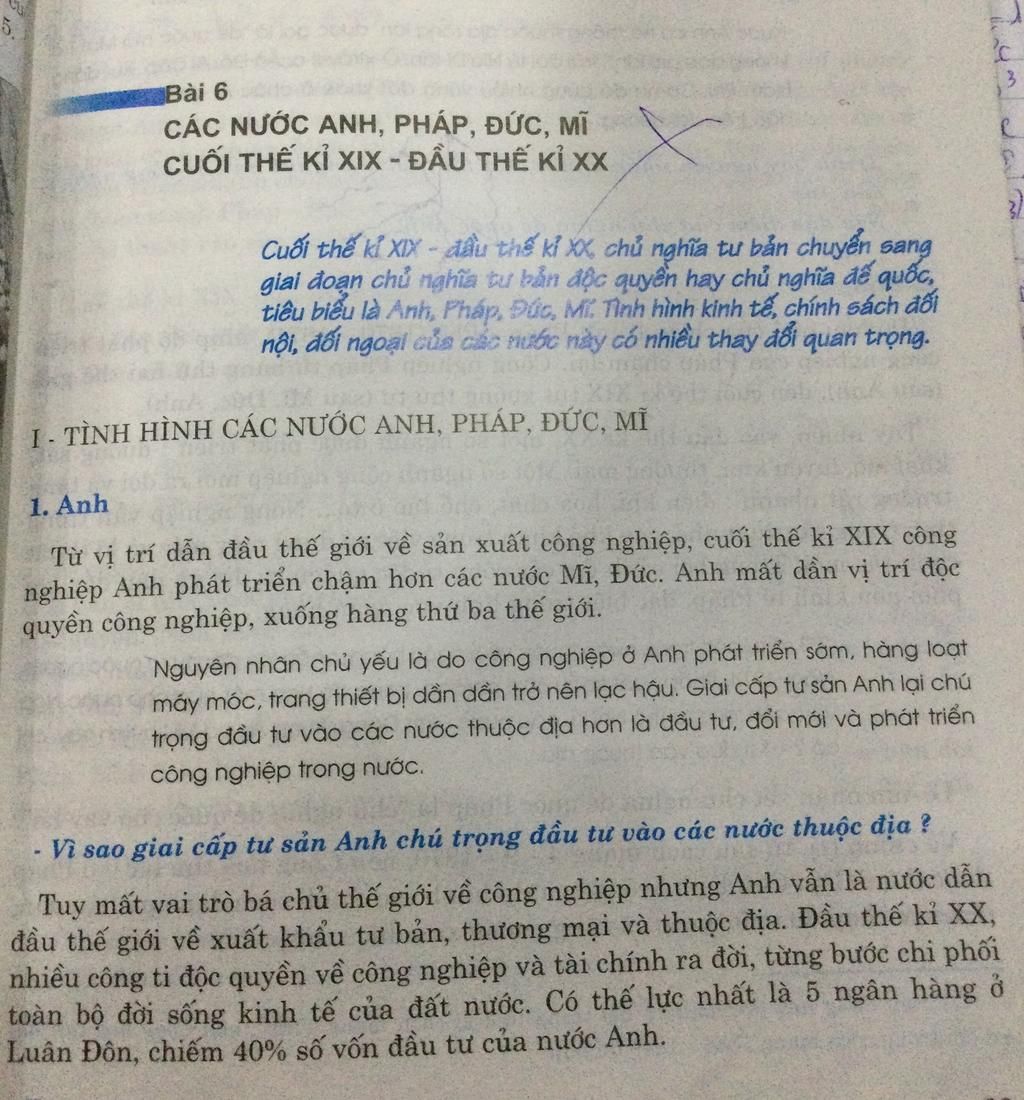 Bài 6
CÁC NƯỚC ANH, PHÁP, ĐỨC, MĨ
CUỐI THẾ KỈ XIX - ĐẦU THẾ KỈ XX
Cuối thế kỉ XIX - đầu thế kỉ XX, chủ nghĩa tư bản chuyển sang
giai đoạn chủ nghĩa tư bản độc quyền hay chủ nghĩa đế quốc,
tiêu biểu là Anh, Pháp, Đức, Mĩ. Tình hình kinh tế, chính sách đối
nội, đối ngoại của các nước này có nhiều thay đổi quan trọng.
I - TÌNH HÌNH CÁC NƯỚC ANH, PHÁP, ĐỨC, MĨ
1. Anh
Từ vị trí dẫn đầu thế giới về sản xuất công nghiệp, cuối thế kỉ XIX công
nghiệp Anh phát triển chậm hơn các nước Mĩ, Đức. Anh mất dần vị trí độc
quyền công nghiệp, xuống hàng thứ ba thế giới.
Nguyên nhân chủ yếu là do công nghiệp ở Anh phát triển sớm, hàng loạt
máy móc, trang thiết bị dần dần trở nên lạc hậu. Giai cấp tư sản Anh lại chú
trọng đầu tư vào các nước thuộc địa hơn là đầu tư, đổi mới và phát triển
công nghiệp trong nước.
- Vì sao giai cấp tư sản Anh chú trọng đầu tư vào các nước thuộc địa ?
Tuy mất vai trò bá chủ thế giới về công nghiệp nhưng Anh vẫn là nước dẫn
đầu thế giới về xuất khẩu tư bản, thương mại và thuộc địa. Đầu thế kỉ XX,
nhiều công ti độc quyền về công nghiệp và tài chính ra đời, từng bước chi phối
toàn bộ đời sống kinh tế của đất nước. Có thế lực nhất là 5 ngân hàng ở
Luân Đôn, chiếm 40% số vốn đầu tư của nước Anh.